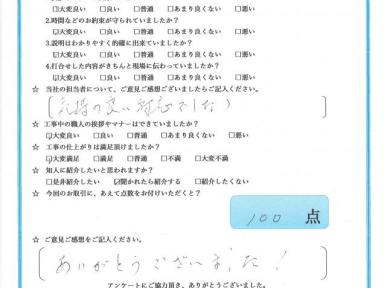 □大変良い □良い □普通 □あまり良くない □悪い
2.時間などのお約束が守られていましたか?
☑大変良い □良い □普通 □あまり良くない □悪い
3.説明はわかりやすく的確に出来ていましたか?
☑大変良い □良い □普通 □あまり良くない □悪い
4.打合せした内容がきちんと現場に伝わっていましたか?
☑大変良い □良い □普通 □あまり良くない □悪い
☆ 当社の担当者について、ご意見ご感想ございましたらご記入ください。
(気持の良い対応でした)
☆ 工事中の職人の挨拶やマナーはできていましたか?
☑大変良い □良い □普通 □あまり良くない □悪い
☆ 工事の仕上がりは満足頂けましたか?
☑大変満足 □満足 □普通 □不満 □大変不満
☆ 知人に紹介したいと思われますか?
□是非紹介したい ☑聞かれたら紹介する □紹介したくない
☆ 今回のお取引に、あえて点数をお付けいただくと?
100 点
☆ ご意見ご感想をご記入ください。
(ありがとうございました!)
アンケートにご協力頂き、ありがとうございました。